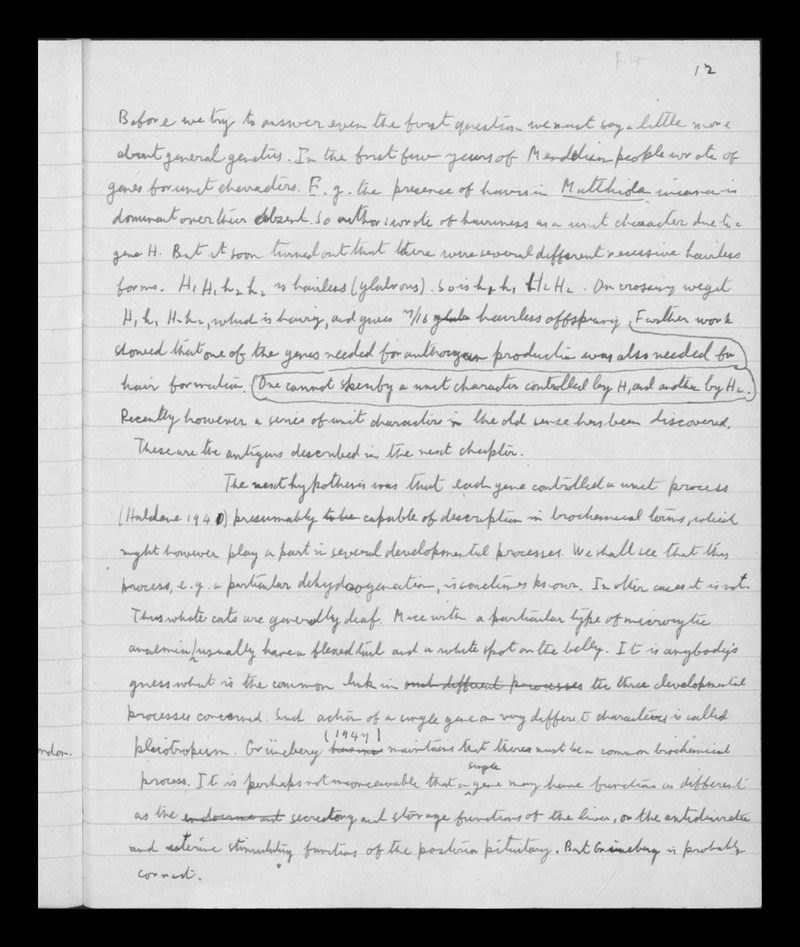 f. 14
12
Before we try to answer even the first question we must say a little more
about general genetics. In the first few years of Mendelism people wrote of
genes for unit characters. E.g. the presence of hairs in Matthiola incana is
dominant over their absent. So authors wrote of hairiness as a unit character due to a
gene H. But it soon turned out that there were several different recessive hairless
forms. H₁ H₁ h₂ h₂ is hairless (glabrous). So is h₁ h₁ H₂ H₂. On crossing we get
H₁ h₁ H₂ h₂, which is hairy, and gives 7/16 glab hairless offspring. Further work
showed that one of the genes needed for anthocyan production was also needed for
hair formation. One cannot by a unit character controlled by H₁ and another by H₂.
Recently however a series of unit characters in the old sense has been discovered.
These are the antigens described in the next chapter.
The next hypothesis was that each gene controlled a unit process
(Haldane 1940) presumably to be capable of description in biochemical terms, which
might however play a part in several developmental processes. We shall see that this
process, e.g. a particular dehydrogenation, is sometimes known. In other cases it is not.
Thus white cats are generally deaf. Mice with a particular type of microcytic
anaemia usually have a flexed tail and a white spot on the belly. It is anybody's
guess what is the common link in such different processes the three developmental
processes concerned. Such action of a single gene on very different characters is called
pleiotropism. Grüneberg (1947) maintains that there must be a common biochemical
process. It is perhaps not inconceivable that a single gene may have functions as different
as the endocrine and secretory and storage functions of the liver, or the antidiuretic
and uterine stimulating functions of the posterior pituitary. But Grüneberg is probably
correct.
ondon.